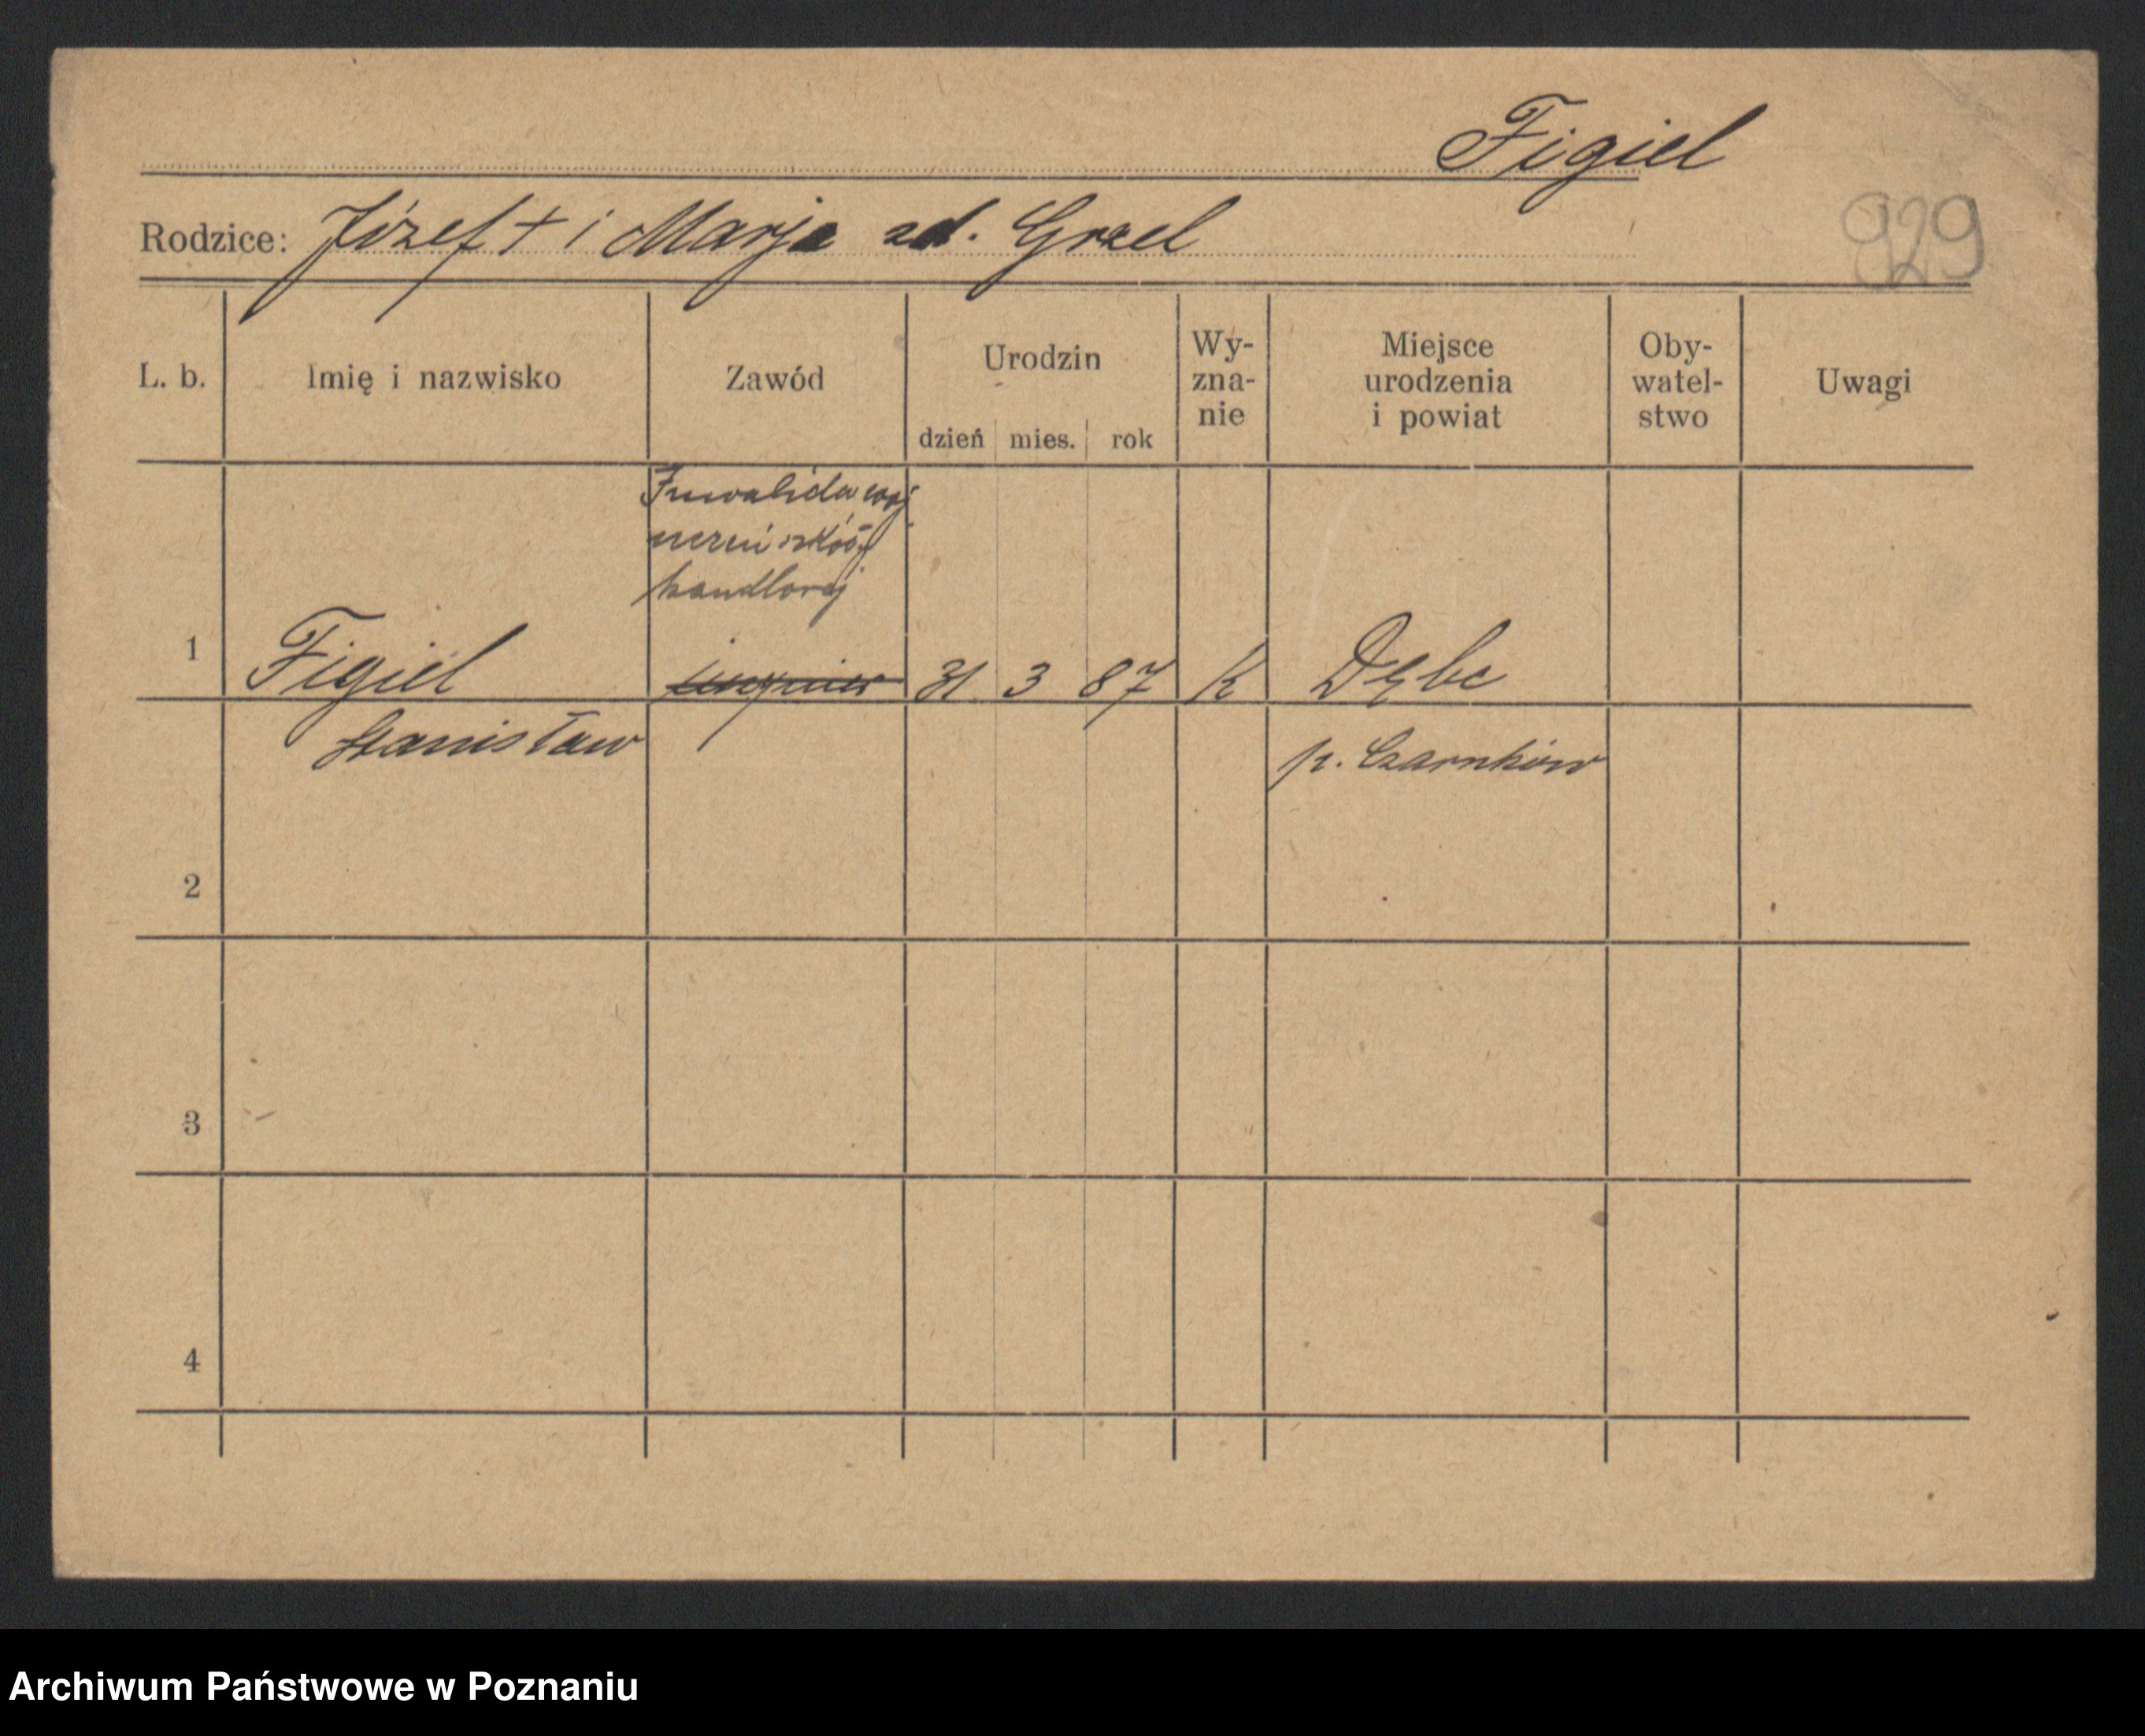 Figiel
929
Rodzice: Józef + i Marja zd. Grzel
L. b. Imię i nazwisko Zawód Urodzin dzień mies. rok Wy-zna-nie Miejsce urodzenia i powiat Oby-watel-stwo Uwagi
Inwalida woj
uczeń szkoły
handlowej
1 Figiel 31 3 87 K Dębe
Stanisław p. Czarnków
2
3
4
Archiwum Państwowe w Poznaniu